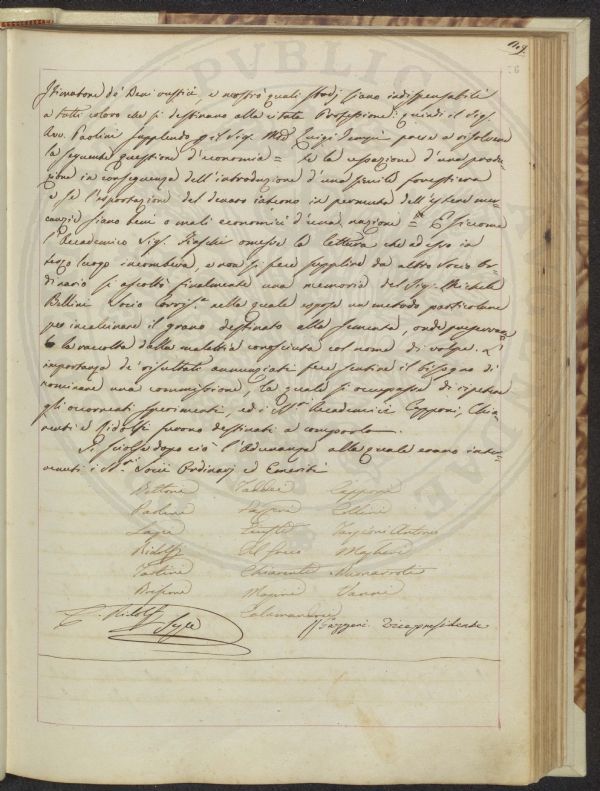 119
76
Stimatore de' Beni rustici, e mostrò quali studj siano indispensabili
a tutti coloro che si destinano alla citata Professione: quindi il Sig.
Avv. Paolini supplendo p. il Sig. Luigi prese a risolvere
la seguente questione d'economia = Se la cessazione d'una produ-
zione in conseguenza dell'introduzione d'una simile forestiera
e, se l'esportazione del denaro interno in permuta dell'estere mer-
canzie siano beni o mali economici d'una nazione = E siccome
l'Accademico Sig. omesse la lettura che adesso in
terzo luogo incombeva, e non si fece supplire da altro Socio Or-
dinario si ascoltò finalmente una memoria del Sig. Michele
Bellini Socio Corrisp. nella quale espose un metodo particolare
per incalcinare il grano destinato alla sementa, onde preservar-
la raccolta dalla malattia conosciuta col nome di volpe. L'
importanza de' risultati annunziati fece sentire il bisogno di
nominare una commissione, la quale si occupasse di ripetere
gli occorrenti sperimenti, ed i Accademici Capponi, Chia-
renti e Ridolfi furono destinati a comporla.
Si sciolse dopo ciò l'Adunanza alla quale erano inter-
venuti i Socj Ordinarj ed Emeriti
Bettoni Taddei Capponi
Paolini Collini
Targioni Antonio
Ridolfi Del Greco Magheri
Tartini Chiarenti Buonarroti
Mazzoni Vanni
C. Ridolfi Segr. Calamandrei
Gazzeri Vicepresidente